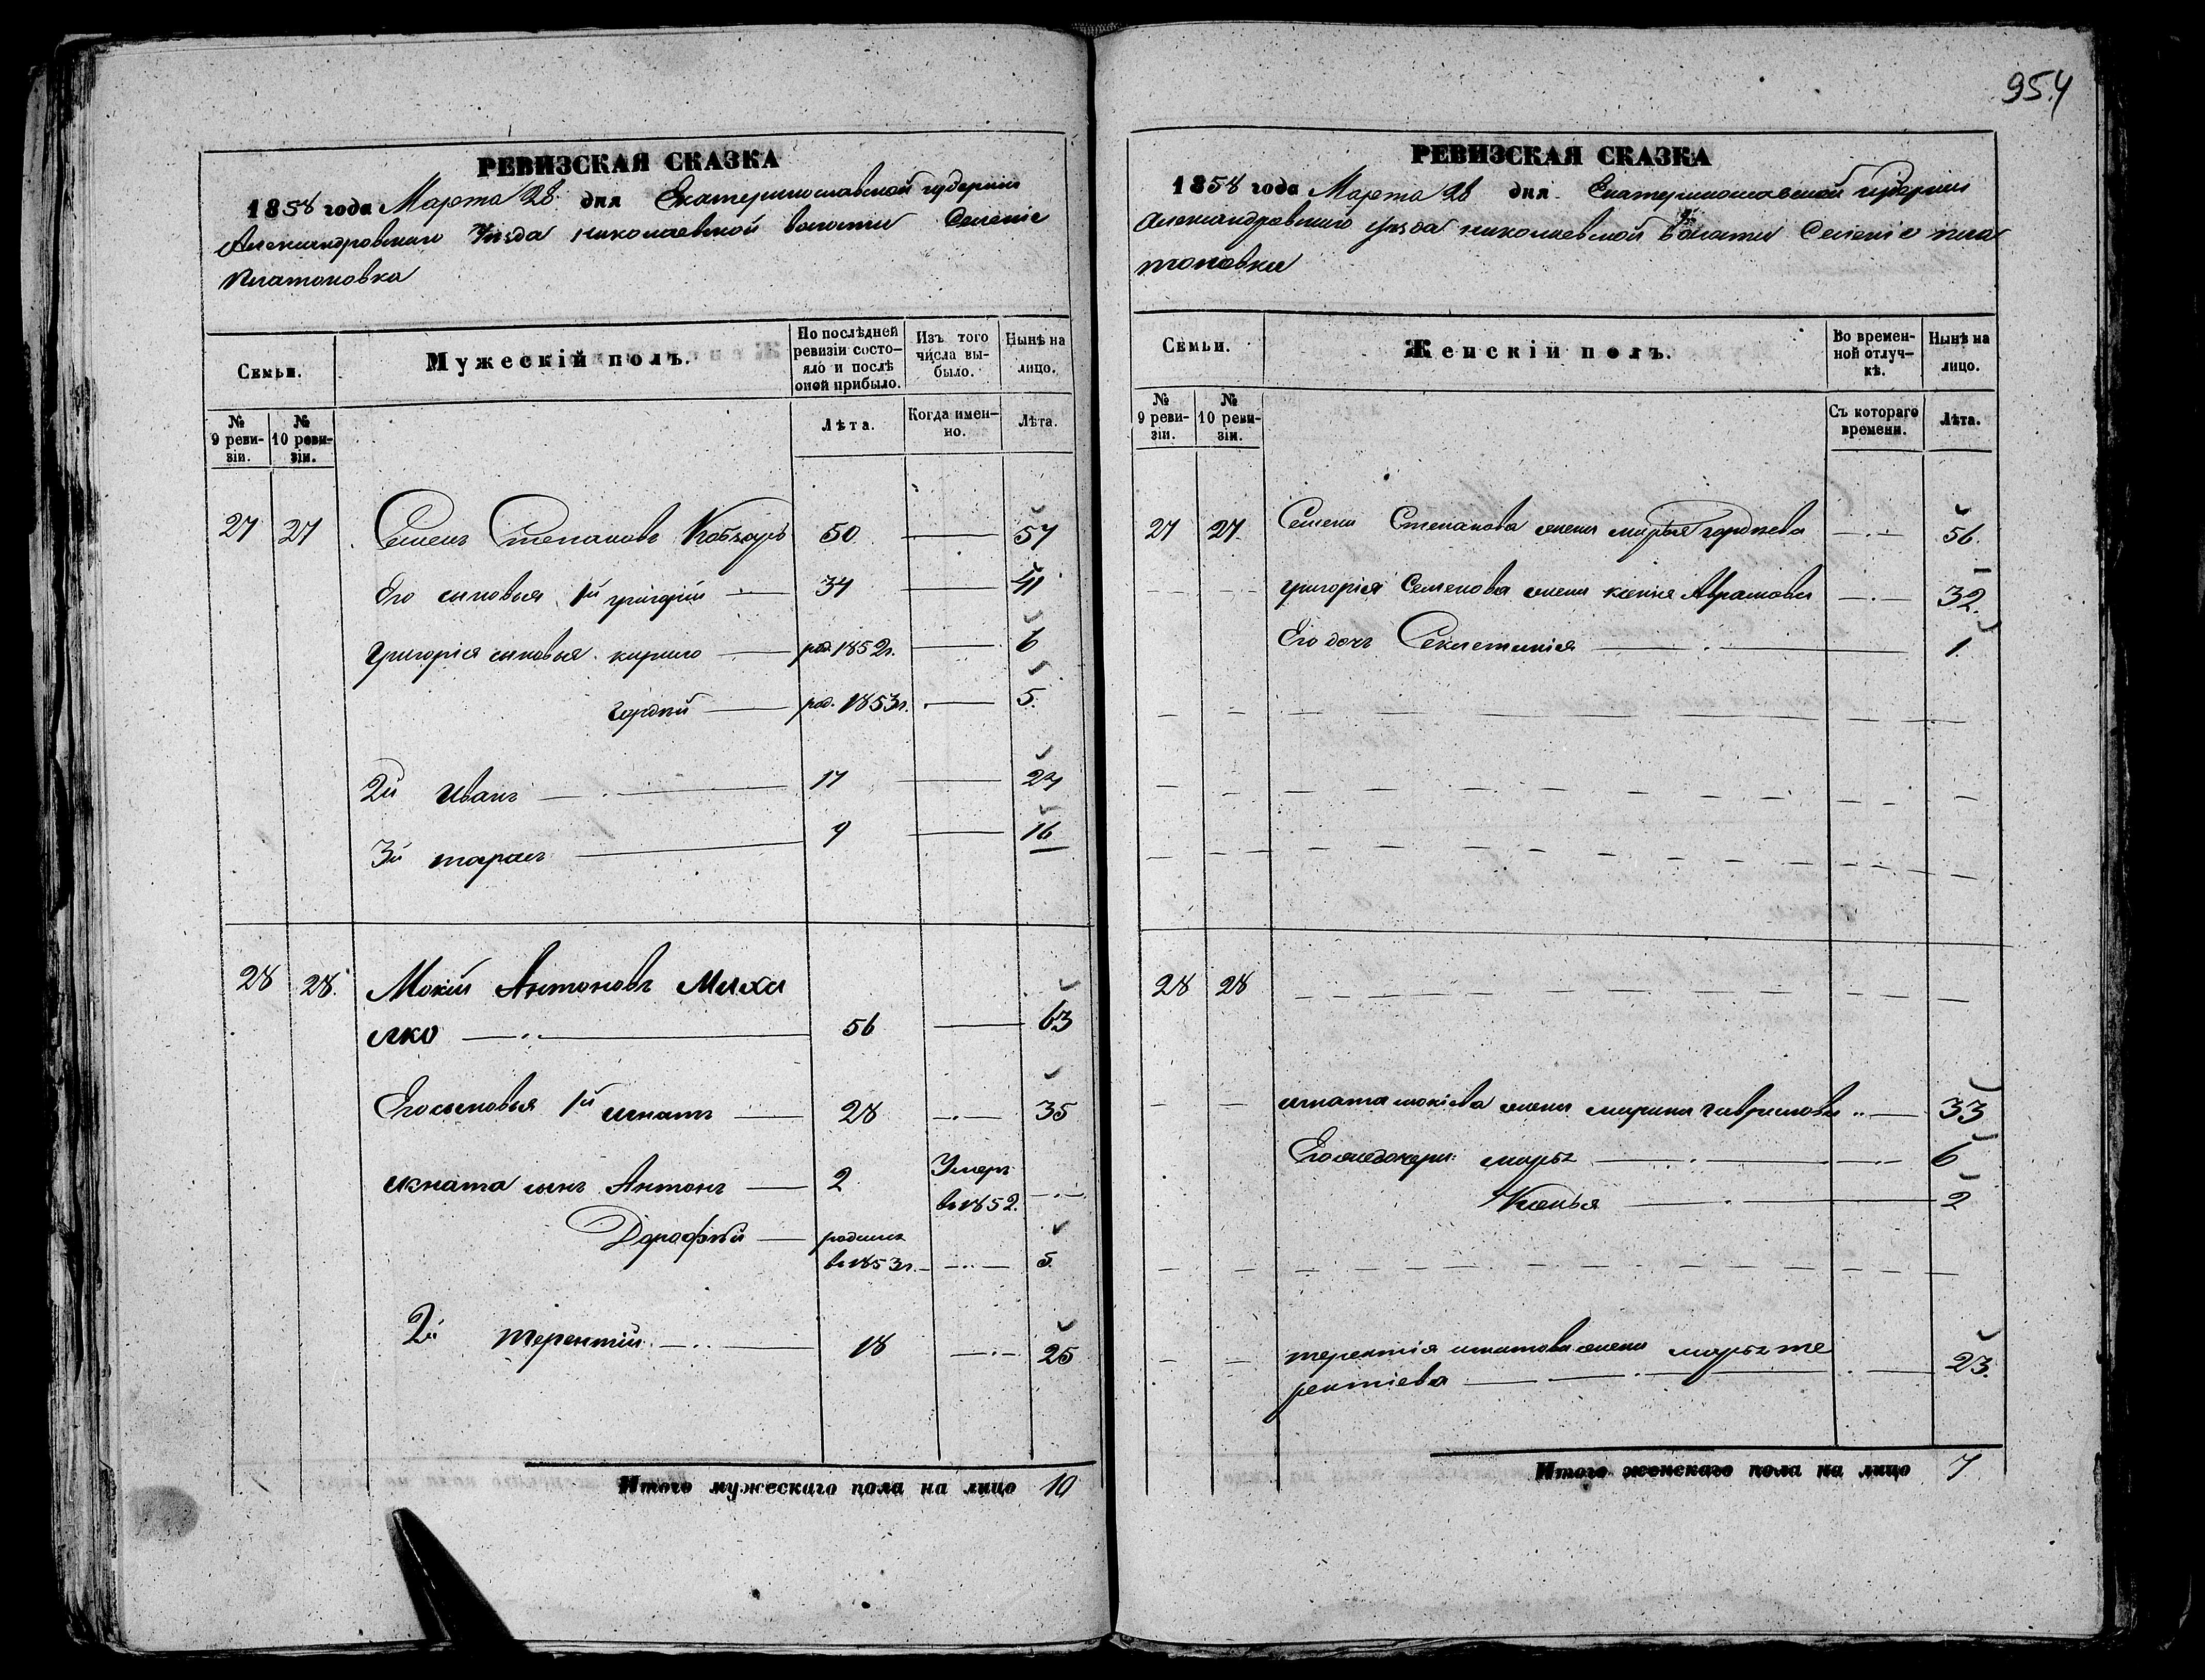 954
РЕВИЗСКАЯ СКАЗКА
1858 года Марта 28 дня Екатеринославской губернии
Александровскаго Уезда николаевской волости Селеніе
Платоновка
Семьи.
Мужескій полъ.
По послѣдней
ревизіи состо-
яло и послѣ
оной прибыло.
Изъ того
числа вы-
было.
Нынѣ на
лицо.
№
9 реви-
зіи.
№
10 реви-
зіи.
Лѣта.
Когда имен-
но.
Лѣта.
27 27 Семенъ Степановъ Кобзарь 50 57
Его сыновья 1й григорій 34 41
Григорія сыновья кирило род. 1852г. 6
гордѣй род. 1853г. 5
2й Иванъ 17 24
3й тарасъ 9 16
28 28 Мокій Антоновъ Михи
лко 56 63
Его сыновья 1й игнатъ 28 35
игната сынъ Антонъ 2 Умеръ
въ 1852.
Дорофѣй родился
въ 1853г. 5
2й терентій 18 25
Итого мужескаго пола на лицо 10
РЕВИЗСКАЯ СКАЗКА
1858 года Марта 28 дня Екатеринославской губернии
Александровскаго уѣзда николаевской волости Селеніе пла
тоновки
Семьи.
Женскій полъ.
Во времен-
ной отлуч-
кѣ.
Нынѣ на
лицо.
№
9 реви-
зіи.
№
10 реви-
зіи.
Съ котораго
времени.
Лѣта.
27 27 Семена Степанова жена марья гордѣева 56
григорія Семенова жена ксенія Аврамова 32
Его дочь Секлетинія 1
28 28
игната мокіева жена марина гаврилова 33
Его же дочери: марья 6
Ксенья 2
терентія игнатова жена марья те
рентіева 23
Итого женскаго пола на лицо 7